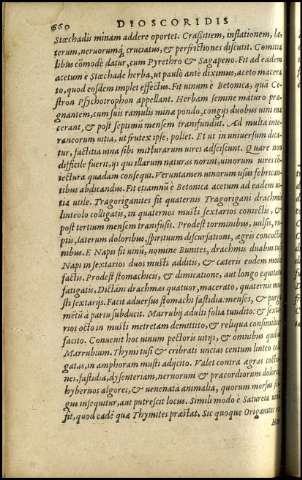 660 DIOSCORIDIS
Stœchadis minam addere oportet. Crassitiem, inflationem, la-
terum, neruorumq́ cruciatus, & perfrictiones discutit. Comitia
libus cõmodè datur, cum Pyrethro & Sagapeno. Fit ad eadem
acetum è Stœchade herba, ut paulò ante diximus, aceto macera
to, quod eosdem implet effectus. Fit uinum è Betonica, quã Ce-
stron Psichotrophon appellant. Herbam semine maturo præ
gnantem, cum suis ramulis mina pondo, congijs duobus uini ma
cerant, & post septimũ mensem transfundunt. Ad multa inte-
raneorum uitia, ut frutex ipse, pollet. Et ut in uniuersum dica
tur, factitia uina sibi mixturarum uires adsciscunt. Quare non
difficile fuerit, ijs qui illarum naturas norint, uinorum uires con
iectura quadam consequi. Veruntamen uinorum usus febrican-
tibus abdicandus. Fit etiamnũ è Betonica acetum ad eadem ui-
tia utile. Tragoriganites fit quaternis Tragorigani drachmis
linteolo colligatis, in quaternos musti sextarios coniectis, &
post tertium mensem transfusis. Prodest torminibus, uulsis, ru
ptis, laterum doloribus, spirituum discursationi, ægrè concocten
tibus. E Napis fit uinũ, nomine Bunites, drachmis duabus tusi
Napi in sextarios duos musti additis, & cæteris eodem modo
factis. Prodest stomachicis, & dimicatione, aut longo equitatu
fatigatis. Dictam drachmas quatuor, macerato, quaternis mu
sti sextarijs. Facit aduersus stomachi fastidia. menses, & purga
mẽta à partu subducit. Marrubij adulti folia tundito, & sexta
rios octo in musti metretam demittito, & reliqua consimiliter
facito. Conuenit hoc uinum pectoris uitijs, & omnibus quibus
Marrubium. Thymi tusi & cribrati uncias centum linteo li
gatas, in amphoram musti adijcito. Valet contra ægras cultio
nes, fastidia, dysenteriam, neruorum & præcordiorum dolores,
hybernos algores, & uenenata animalia, quorum morsus fri
gus insequitur, aut putrescit locus. Simili modo è Satureia uinũ
fit, quod eadẽ quæ Thymites præstat. Sic quoque Origanites ex